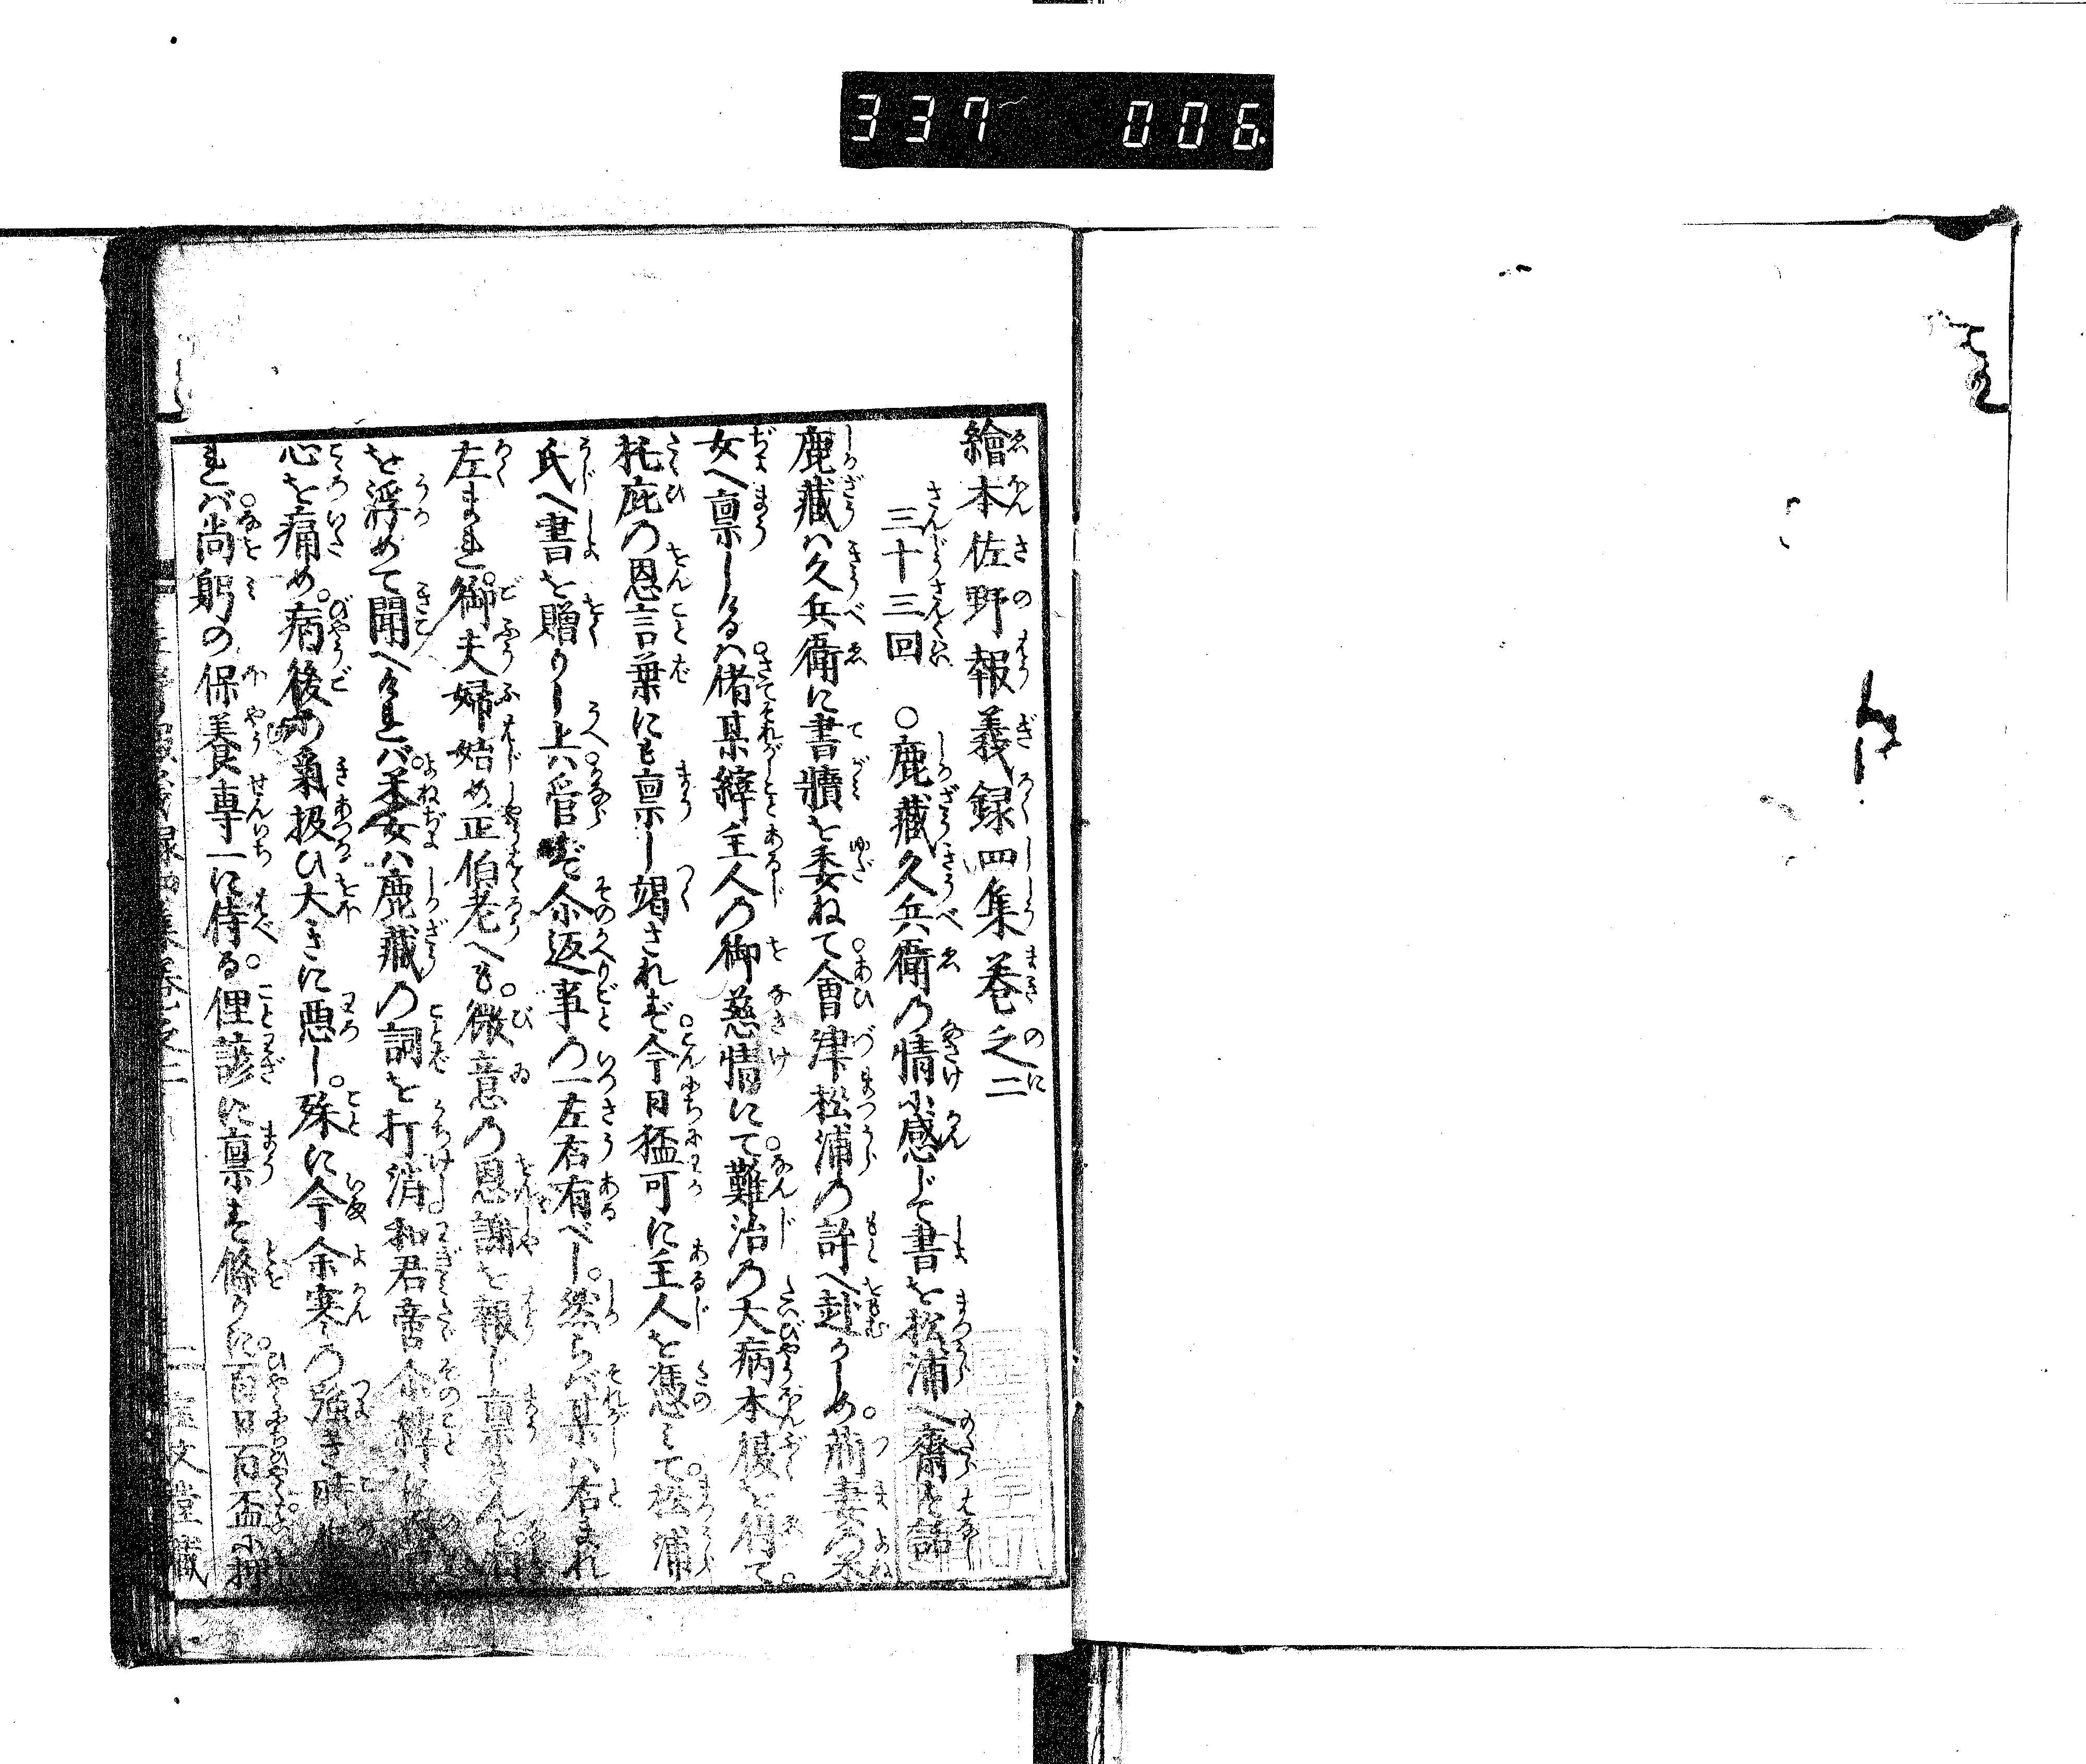 337 006
繪本佐野報義録四集巻之二
三十三回 ○鹿藏久兵衛の情に感じて書を松浦へ齎す話
鹿藏ハ久兵衛に書牘を委ねて會津松浦の許へ赴かしめ。荊妻の米
女へ稟しけるハ。偖某緯主人の御慈情にて。難治の大病本復を得て。
托庇の恩言葉にも稟し竭されず。今日猛可に主人を憑ミて。松浦
氏へ書を贈りし上ハ。管ず尒返事の一左右有べし。然らバ某ハ右まれ
左まれ。御夫婦始め正伯老へも。微意の恩謝を報じ稟さんと。
を浮めて聞へけれバ。米女ハ鹿藏の詞を打消。和君啻尒緯に
心を痛め。病後の氣扱ひ大きに悪し。殊に今余寒の強き時
れバ。尚躬の保養専一に侍る。俚諺に稟す條りに。百日百盃に
二 文堂藏